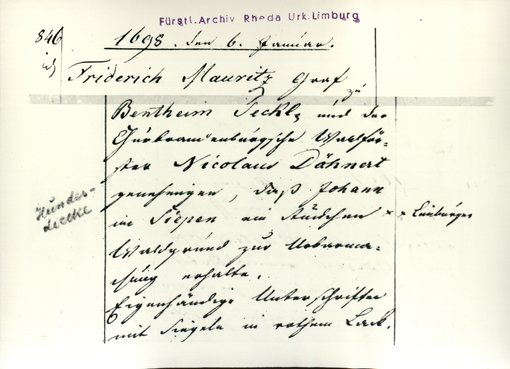 Fürstl. Archiv Rheda Urk. Limburg
846
1698. den 6. Januar.
Friderich Mauritz Graf
zu
Bentheim Teckl. und der
Churbrandenburgsche Waldför-
ster Nicolaus Dähnert
genehmigen, daß Johann
im Siepen ein Stückchen × × Limburger
Waldgrund zur Urbarma-
chung erhalte.
Eigenhändige Unterschriften
mit Siegeln in rothem Lack.
Hunder-